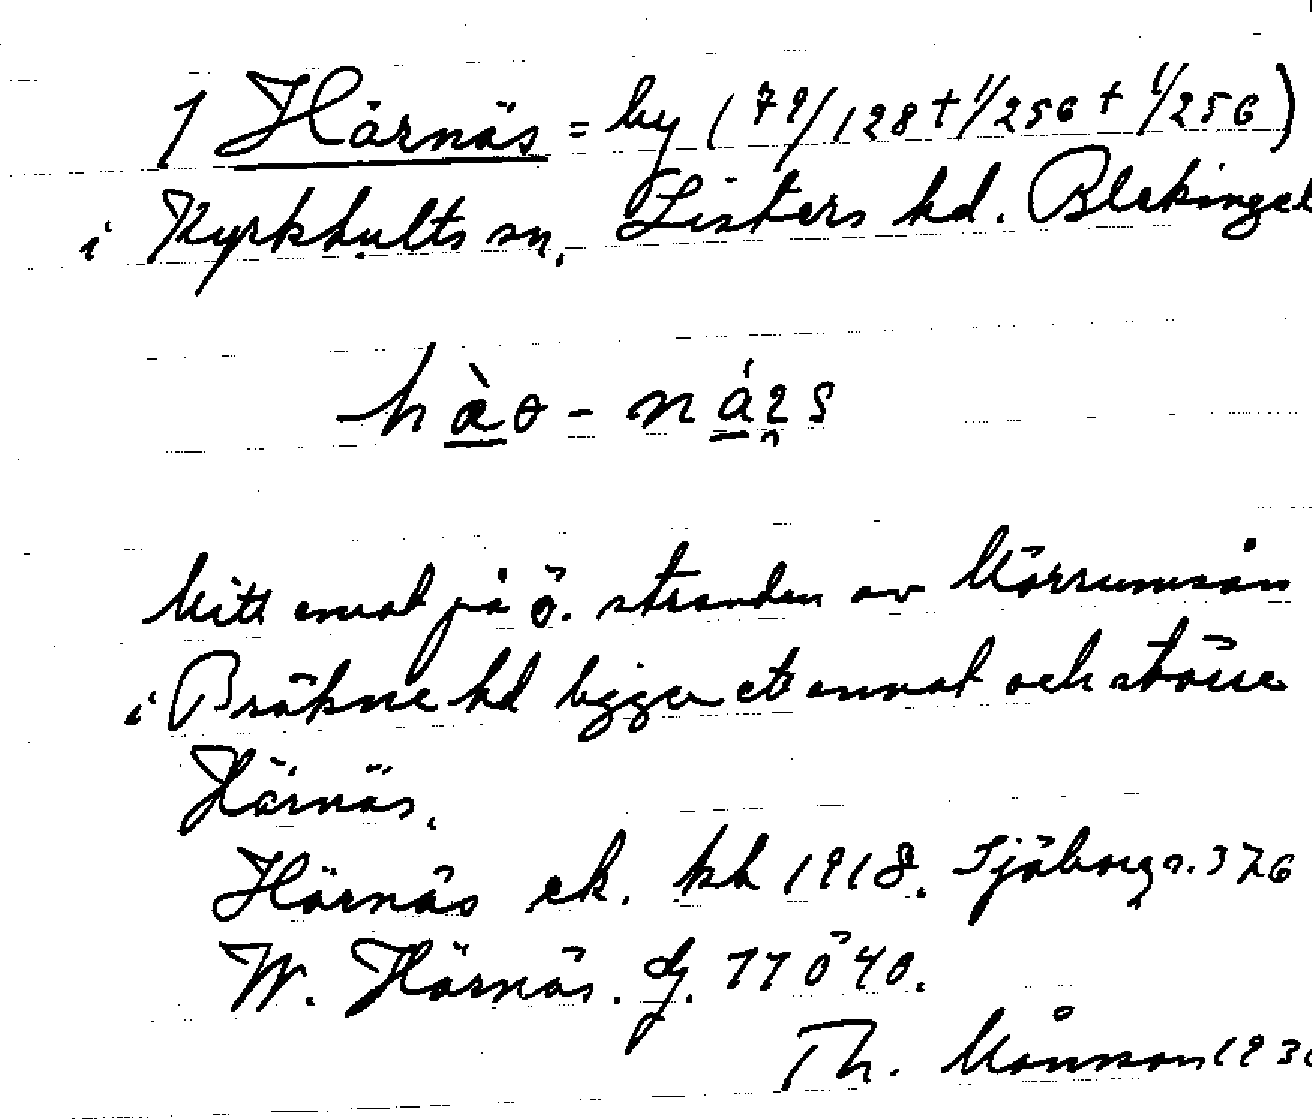 1 Härnäs = by (79/128 + 1/256 + 1/256)
i Kyrkhults sn. Listers hd. Blekinge l
Mitt emot på ö. stranden av Mörrumsån
i Bräkne hd ligger ett annat och större
Härnäs.
Härnäs ek. kbl 1918. Sjöborg s. 376
W. Härnäs. Gj. 77 Ö 40.
Th. Månsson 193